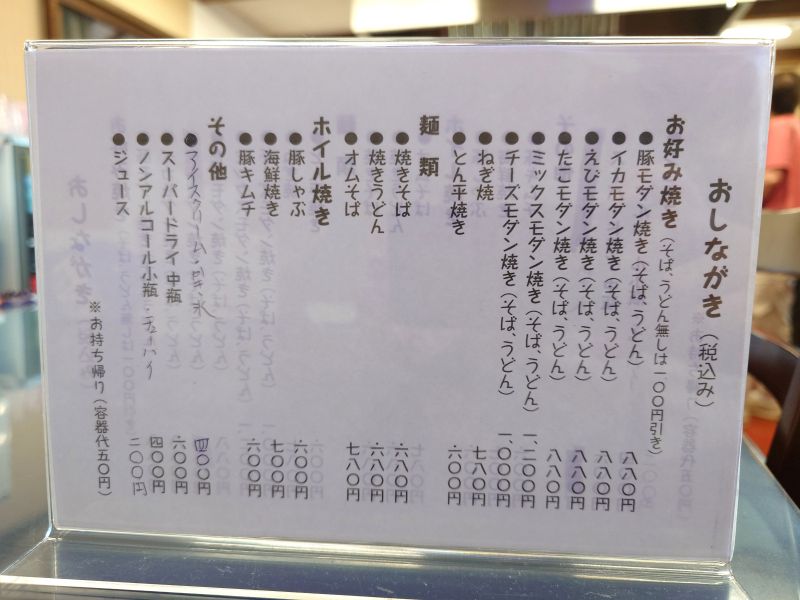 おしながき（税込み）
お好み焼き（そば、うどん無しは一、〇〇円引き）
●豚モダン焼き（そば、うどん） 八八〇円
●イカモダン焼き（そば、うどん） 八八〇円
●えびモダン焼き（そば、うどん） 八八〇円
●たこモダン焼き（そば、うどん） 八八〇円
●ミックスモダン焼き（そば、うどん） 一、二〇〇円
●チーズモダン焼き（そば、うどん） 一、〇〇〇円
●ねぎ焼 七八〇円
●とん平焼き 六〇〇円
麺類
●焼きそば 六八〇円
●焼きうどん 六八〇円
●オムそば 七八〇円
ホイル焼き
●豚しゃぶ 六〇〇円
●海鮮焼き 七〇〇円
●豚キムチ 六〇〇円
その他
●アイスクリーム 四〇〇円
●スーパードライ中瓶 六〇〇円
●ノンアルコール小瓶・チューハイ 四〇〇円
●ジュース 二〇〇円
※お持ち帰り（容器代五〇円）